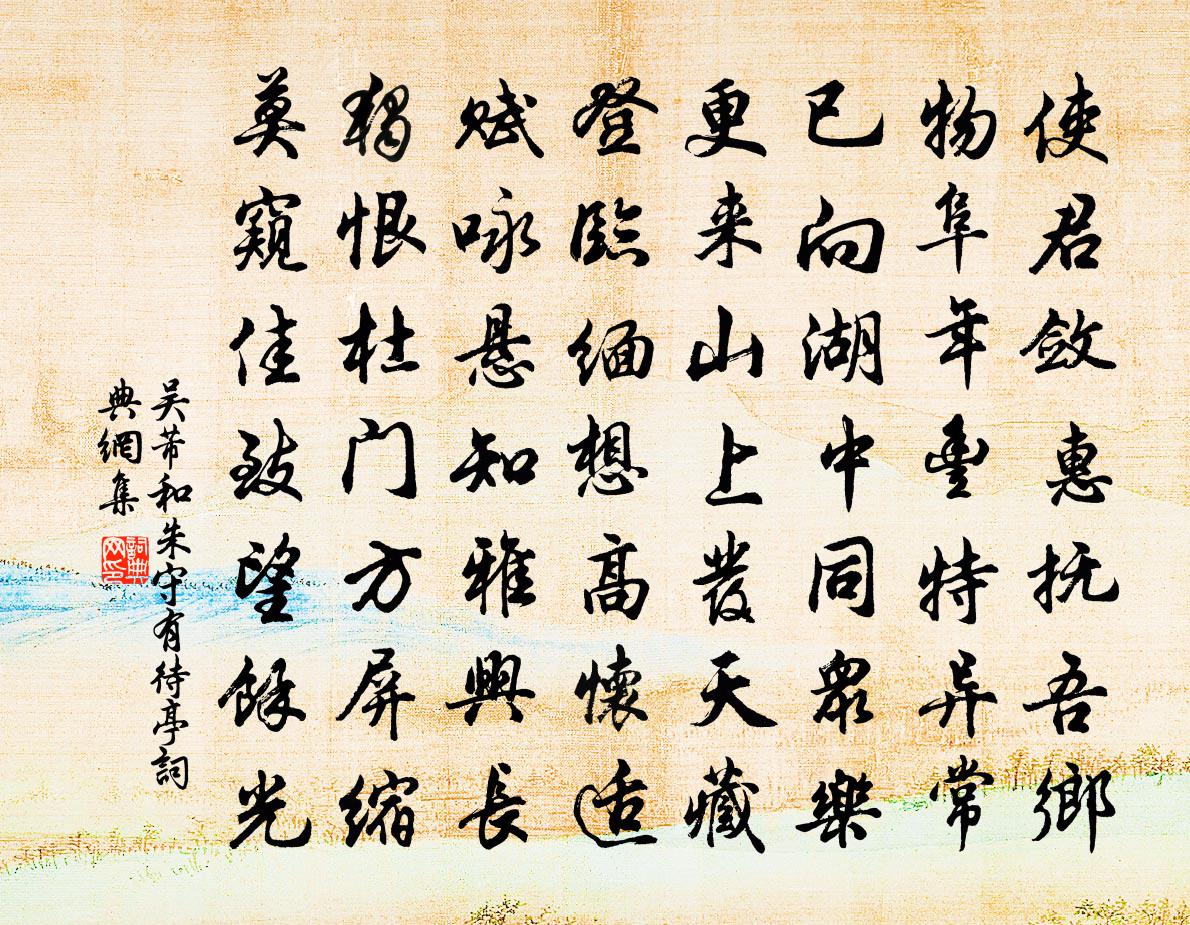 使君敛惠抚吾鄉
物阜年豊特异常
已向湖中同衆樂
更来山上發天藏
登臨缅想高懷适
赋咏悬知雅興長
獨恨杜门方屏缩
莫窺佳致望餘光
吴芾和朱守有待亭詞
典網集
詞典
网印